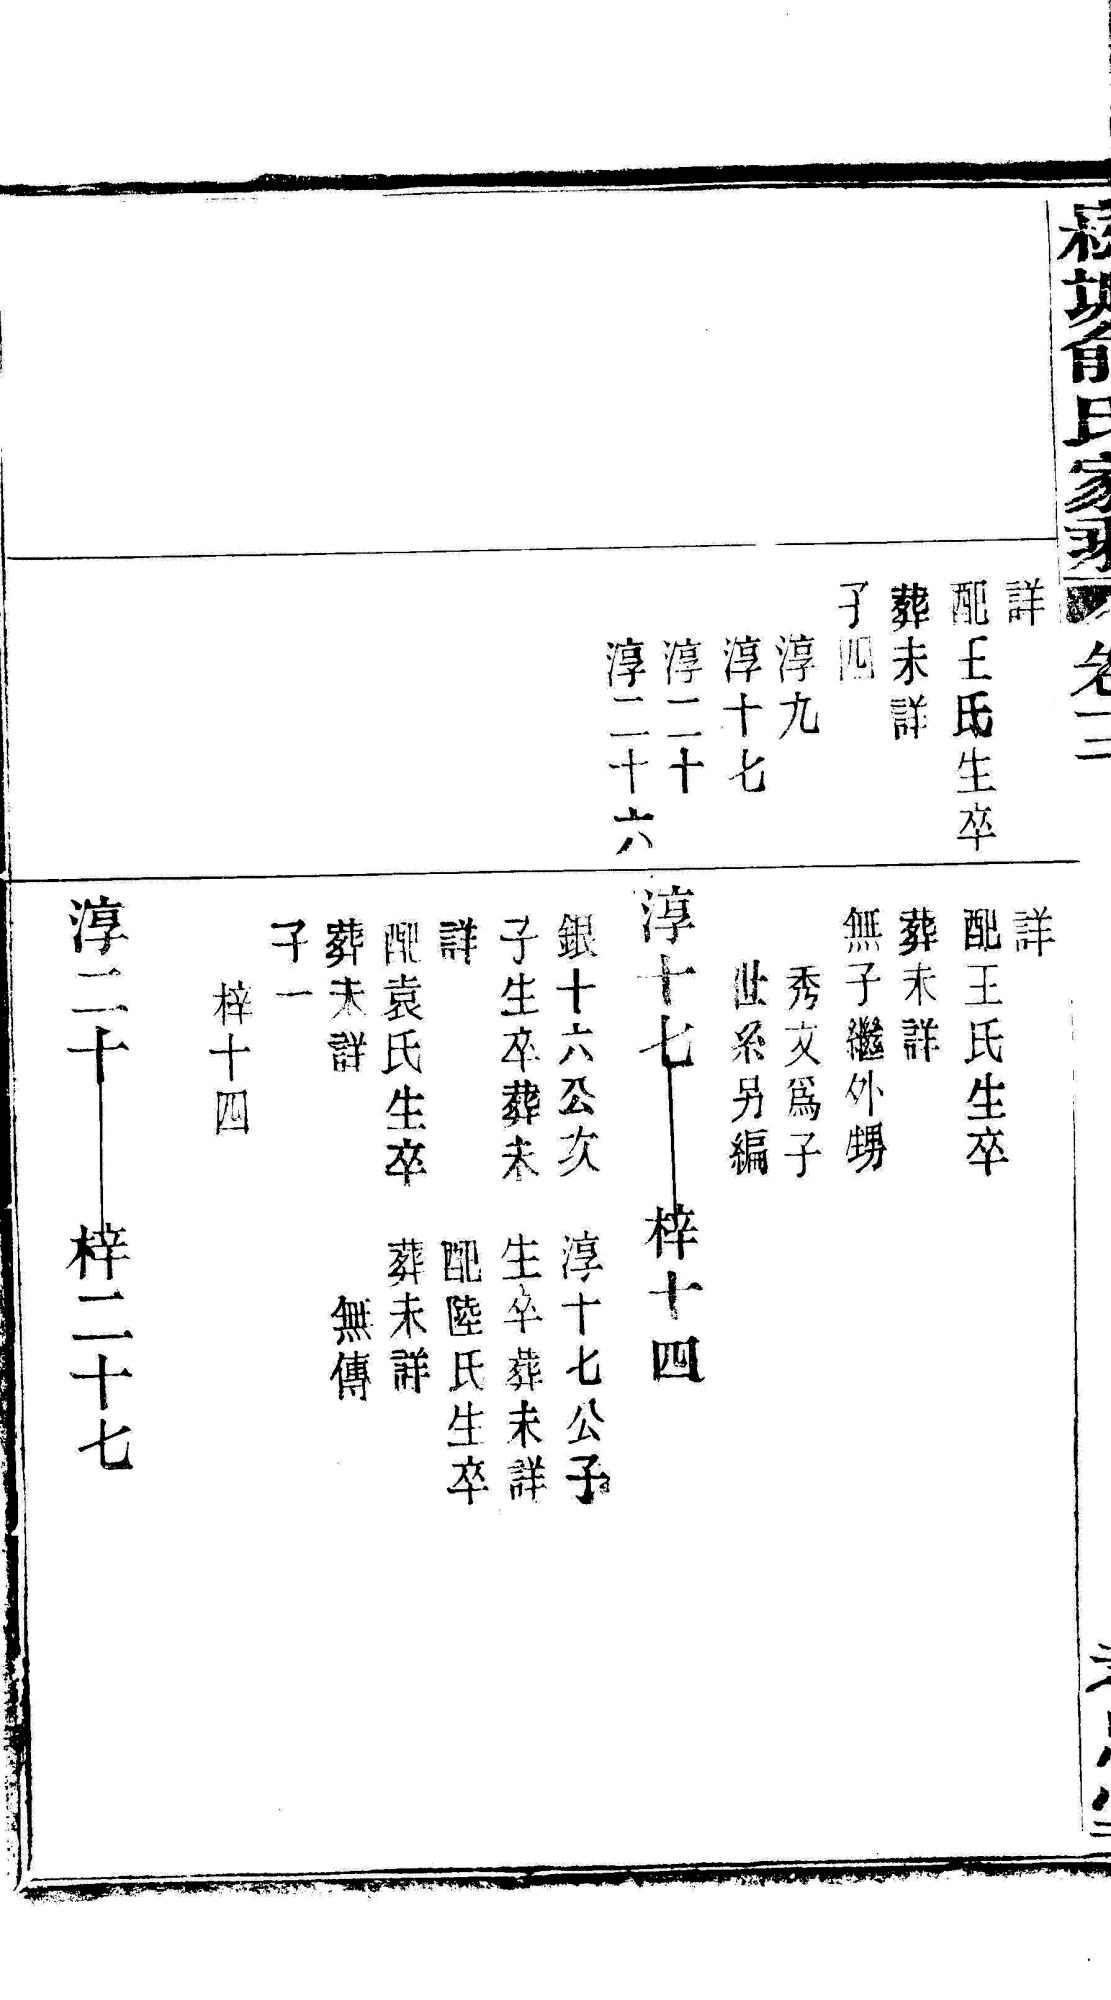 俞氏家乘 卷三
詳
配王氏生卒
葬未詳
子四
淳九
淳十七
淳二十
淳二十六
詳
配王氏生卒
葬未詳
無子繼外甥
秀文爲子
世系另編
淳十七 梓十四
銀十六公次
子生卒葬未
詳
配袁氏生卒
葬未詳
子一
梓十四
淳十七公子
生卒葬未詳
配陸氏生卒
葬未詳
無傳
淳二十 梓二十七